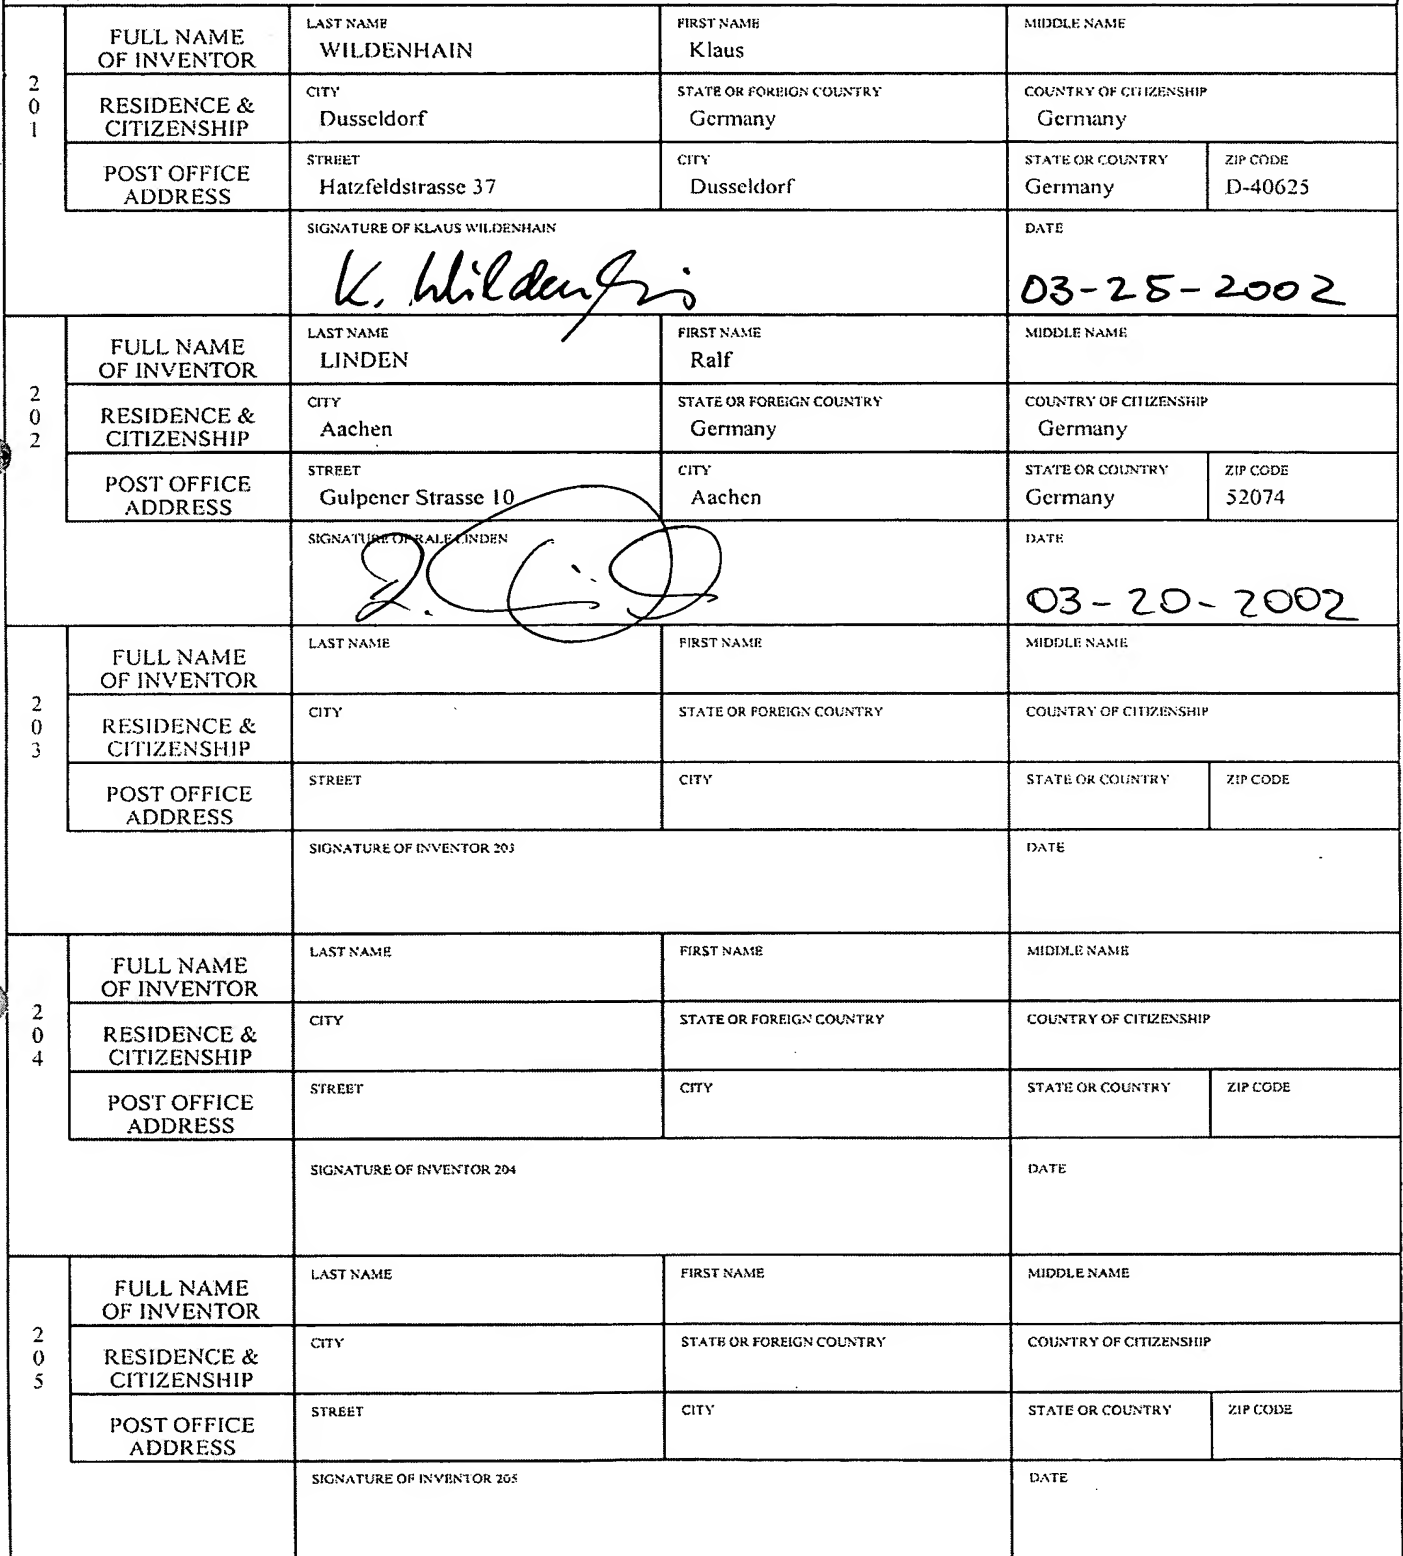 201
FULL NAME OF INVENTOR
LAST NAME WILDENHAIN
FIRST NAME Klaus
MIDDLE NAME
RESIDENCE & CITIZENSHIP
CITY Dusseldorf
STATE OR FOREIGN COUNTRY Germany
COUNTRY OF CITIZENSHIP Germany
POST OFFICE ADDRESS
STREET Hatzfeldstrasse 37
CITY Dusseldorf
STATE OR COUNTRY Germany
ZIP CODE D-40625
SIGNATURE OF KLAUS WILDENHAIN
K. Wildenhain
DATE
03-25-2002
202
FULL NAME OF INVENTOR
LAST NAME LINDEN
FIRST NAME Ralf
MIDDLE NAME
RESIDENCE & CITIZENSHIP
CITY Aachen
STATE OR FOREIGN COUNTRY Germany
COUNTRY OF CITIZENSHIP Germany
POST OFFICE ADDRESS
STREET Gulpener Strasse 10
CITY Aachen
STATE OR COUNTRY Germany
ZIP CODE 52074
SIGNATURE OF RALF LINDEN
DATE
03-20-2002
203
FULL NAME OF INVENTOR
LAST NAME
FIRST NAME
MIDDLE NAME
RESIDENCE & CITIZENSHIP
CITY
STATE OR FOREIGN COUNTRY
COUNTRY OF CITIZENSHIP
POST OFFICE ADDRESS
STREET
CITY
STATE OR COUNTRY
ZIP CODE
SIGNATURE OF INVENTOR 203
DATE
204
FULL NAME OF INVENTOR
LAST NAME
FIRST NAME
MIDDLE NAME
RESIDENCE & CITIZENSHIP
CITY
STATE OR FOREIGN COUNTRY
COUNTRY OF CITIZENSHIP
POST OFFICE ADDRESS
STREET
CITY
STATE OR COUNTRY
ZIP CODE
SIGNATURE OF INVENTOR 204
DATE
205
FULL NAME OF INVENTOR
LAST NAME
FIRST NAME
MIDDLE NAME
RESIDENCE & CITIZENSHIP
CITY
STATE OR FOREIGN COUNTRY
COUNTRY OF CITIZENSHIP
POST OFFICE ADDRESS
STREET
CITY
STATE OR COUNTRY
ZIP CODE
SIGNATURE OF INVENTOR 205
DATE